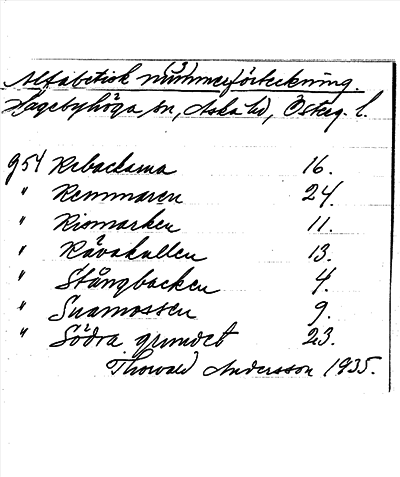 (3)
Alfabetisk nummerförteckning.
Hagebyhöga sn, Aska hd, Österg. l.
954 Rebackarna 16.
" Remmaren 24.
" Rismarken 11.
" Rävakullen 13.
" Stångbacken 4.
" Suamossen 9.
" Södra grundet 23.
Thorvald Andersson 1935.